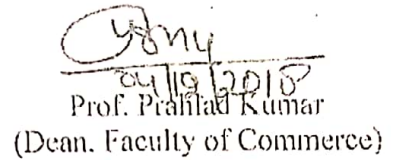 04/12/2018
Prof. Prahlad Kumar
(Dean. Faculty of Commerce)